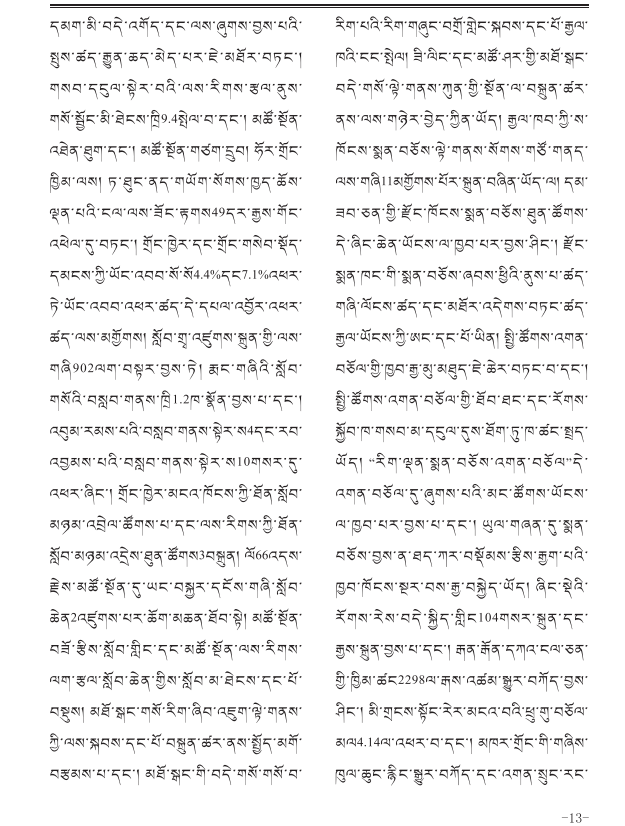 དམག་མི་བདེ་འགོད་དང་ལས་ཞུགས་བྱས་པའི་
སྤུས་ཚད་རྒྱུན་ཆད་མེད་པར་ཇེ་མཐོར་བཏང་།
གསབ་དངུལ་སྟེར་བའི་ལས་རིགས་རྩལ་ནུས་
གསོ་སྦྱོང་མི་ཐེངས་ཁྲི9.4སྤེལ་བ་དང་། མཚོ་སྔོན་
འཐེན་ཐུག་དང་། མཚོ་སྔོན་གཙག་དྲུབ། ཧོར་གྲོང་
ཁྱིམ་ལས། ཏ་ཐུང་ནད་གཡོག་སོགས་ཁྱད་ཆོས་
ལྡན་པའི་ངལ་ལས་ཟོང་རྟགས49དར་རྒྱས་གོང་
འཕེལ་དུ་བཏང་། གྲོང་ཁྱེར་དང་གྲོང་གསེབ་སྡོད་
དམངས་ཀྱི་ཡོང་འབབ་སོ་སོ4.4%དང7.1%འཕར་
ཏེ་ཡོང་འབབ་འཕར་ཚད་དེ་དཔལ་འབྱོར་འཕར་
ཚད་ལས་མགྱོགས། སློབ་གྲྭ་འཛུགས་སྐྲུན་གྱི་ལས་
གཞི902ལག་བསྟར་བྱས་ཏེ། རྨང་གཞིའི་སློབ་
གསོའི་བསླབ་གནས་ཁྲི1.2ཁ་སྣོན་བྱས་པ་དང་།
འབུམ་རམས་པའི་བསླབ་གནས་སྟེར་ས4དང་རབ་
འབྱམས་པའི་བསླབ་གནས་སྟེར་ས10གསར་དུ་
འཕར་ཞིང་། གྲོང་ཁྱེར་མངའ་ཁོངས་ཀྱི་ཐོན་སློབ་
མཉམ་འབྲེལ་ཚོགས་པ་དང་ལས་རིགས་ཀྱི་ཐོན་
སློབ་མཉམ་འདྲེས་ཐུན་ཚོགས3བསྐྲུན། ལོ66འདས་
རྗེས་མཚོ་སྔོན་དུ་ཡང་བསྐྱར་དངོས་གཞི་སློབ་
ཆེན2འཛུགས་པར་ཆོག་མཆན་ཐོབ་སྟེ། མཚོ་སྔོན་
བཟོ་རྩིས་སློབ་གླིང་དང་མཚོ་སྔོན་ལས་རིགས་
ལག་རྩལ་སློབ་ཆེན་གྱིས་སློབ་མ་ཐེངས་དང་པོ་
བསྡུས། མཐོ་སྒང་གསོ་རིག་ཞིབ་འཇུག་ལྟེ་གནས་
ཀྱི་ལས་སྐབས་དང་པོ་བསྐྲུན་ཚར་ནས་སྤྱོད་མགོ་
བརྩམས་པ་དང་། མཐོ་སྒང་གི་བདེ་གསོ་གསོ་བ་
རིག་པའི་རིག་གཞུང་བགྲོ་གླེང་སྐབས་དང་པོ་རྒྱལ་
ཁའི་ངང་སྤེལ། ཟི་ལིང་དང་མཚོ་ཤར་གྱི་མཐོ་སྒང་
བདེ་གསོ་ལྟེ་གནས་ཀུན་གྱི་སྔོན་ལ་བསྐྲུན་ཚར་
ནས་ལས་གཉེར་བྱེད་ཀྱིན་ཡོད། རྒྱལ་ཁབ་ཀྱི་ས་
ཁོངས་སྨན་བཅོས་ལྟེ་གནས་སོགས་གཙོ་གནད་
ལས་གཞི11མགྱོགས་པོར་སྐྲུན་བཞིན་ཡོད་ལ། དམ་
ཟབ་ཅན་གྱི་རྫོང་ཁོངས་སྨན་བཅོས་ཐུན་ཚོགས་
དེ་ཞིང་ཆེན་ཡོངས་ལ་ཁྱབ་པར་བྱས་ཤིང་། རྫོང་
སྨན་ཁང་གི་སྨན་བཅོས་ཞབས་ཕྱིའི་ནུས་པ་ཚད་
གཞི་ལོངས་ཚད་དང་མཐོར་འདེགས་བཏང་ཚད་
རྒྱལ་ཡོངས་ཀྱི་ཨང་དང་པོ་ཡིན། སྤྱི་ཚོགས་འགན་
བཅོལ་གྱི་ཁྱབ་རྒྱ་མུ་མཐུད་ཇེ་ཆེར་བཏང་བ་དང་།
སྤྱི་ཚོགས་འགན་བཅོལ་གྱི་ཐོབ་ཐང་དང་རོགས་
སྐྱོབ་ཁ་གསབ་མ་དངུལ་དུས་ཐོག་ཏུ་ཁ་ཚང་སྤྲད་
ཡོད། “རིག་ལྡན་སྨན་བཅོས་འགན་བཅོལ”དེ་
འགན་བཅོལ་དུ་ཞུགས་པའི་མང་ཚོགས་ཡོངས་
ལ་ཁྱབ་པར་བྱས་པ་དང་། ཡུལ་གཞན་དུ་སྨན་
བཅོས་བྱས་ན་ཐད་ཀར་བསྡོམས་རྩིས་རྒྱག་པའི་
ཁྱབ་ཁོངས་སྔར་བས་རྒྱ་བསྐྱེད་ཡོད། ཞིང་སྡེའི་
རོགས་རེས་བདེ་སྐྱིད་གླིང104གསར་སྐྲུན་དང་
རྒྱས་སྐྲུན་བྱས་པ་དང་། རྒན་རྒོན་དཀའ་ངལ་ཅན་
གྱི་ཁྱིམ་ཚང2298ལ་རྒས་འཚམ་སྒྱུར་བཀོད་བྱས་
ཤིང་། མི་གྲངས་སྟོང་རེར་མངའ་བའི་ཕྲུ་གུ་བཅོལ་
མལ4.14ལ་འཕར་བ་དང་། མཁར་གྲོང་གི་གཞིས་
ཁུལ་ཆུང་རྙིང་སྒྱུར་བཀོད་དང་འགན་སྲུང་རང་
-13-